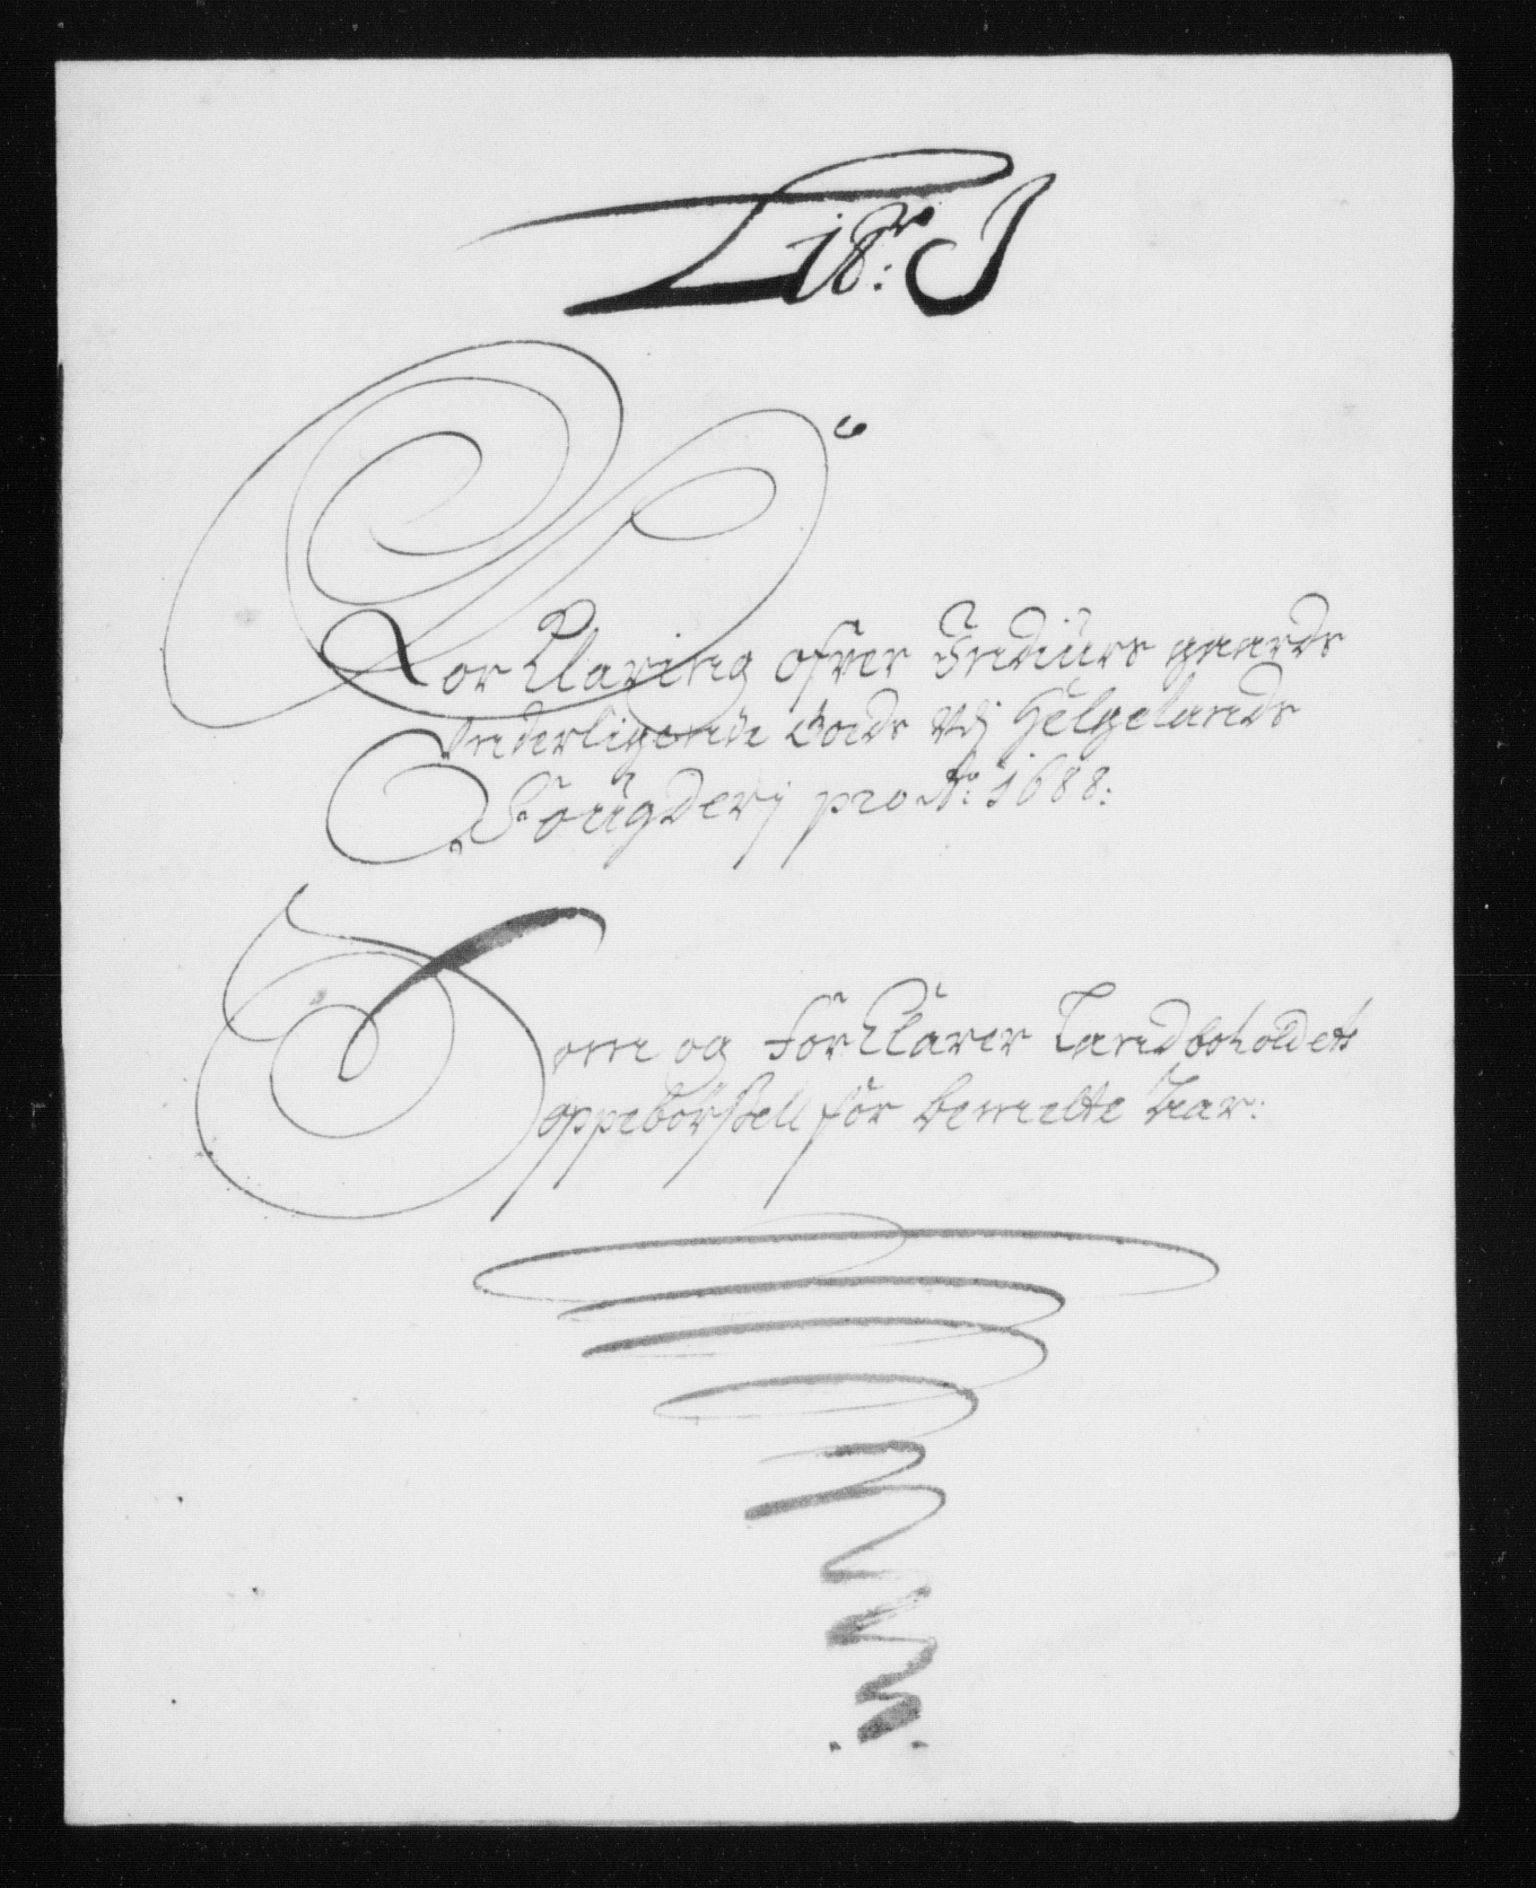 Litr: J
Forklaring ofver Indiurs gaards
underligende Goeds Udj Helgelands
Fougderj pro A̅o: 1688:
Som og forklarer Landboholdets
oppebörssell for bemelte Aar: